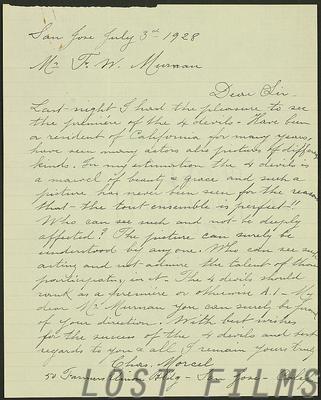 San Jose July 3rd 1928
Mr F. W. Murnau
Dear Sir
Last night I had the pleasure to see
the premiere of the 4 devils - Have been
a resident of California for many years,
have seen many actors also pictures of different
kinds. In my estimation the 4 devils is
a marvel of beauty & grace and such a
picture has never been seen for the reason
that - the tout ensemble is perfect!!
Who can see such and not be deeply
affected? The picture can surely be
understood by anyone. Who can see such
acting and not admire the talent of those
participating in it - The 4 devils should
rank as a premiere or otherwise A.1 - My
dear Mr Murnau you can surely be proud
of your direction. With best wishes
for the success of the 4 devils and best
regards to you & all I remain yours truly
Chas. Morcel
50 Bldg - San Jose
LOST FILMS